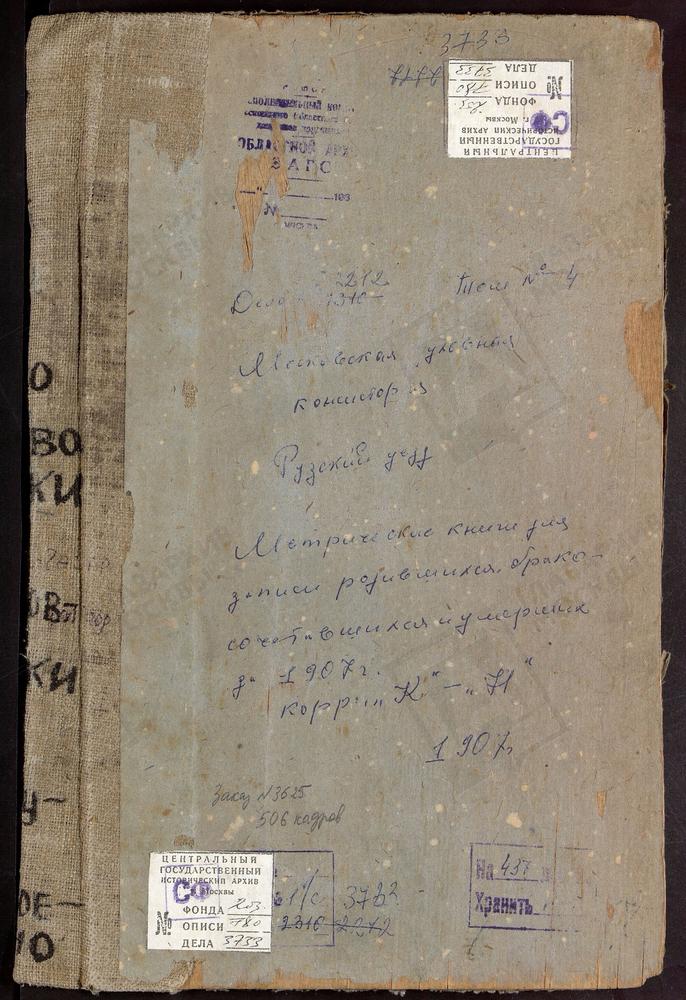 3733
ДЕЛА 3733
ОПИСИ 780
ФОНДА 203
№
г. Москвы
ИСТОРИЧЕСКИЙ АРХИВ
ГОСУДАРСТВЕННЫЙ
ЦЕНТРАЛЬНЫЙ
СФ
ОБЛАСТНОЙ АРХ
ЗАГС
193
№
2212
Дело 1310
Том № 4
Московская духовная
консистория
Рузский уезд
Метрические книги для
записи родившихся, брако-
сочетавшихся и умерших
за 1907 г.
"К" – "Н"
1907
Заказ N3625
506 кадров
ЦЕНТРАЛЬНЫЙ
ГОСУДАРСТВЕННЫЙ
ИСТОРИЧЕСКИЙ АРХИВ
г. Москвы
СФ
ФОНДА 203
№ ОПИСИ 780
ДЕЛА 3733
2212
На 437 л
Хранить
О
ВО
КИ
ОВ
КИ
У–
ОЕ–
Ю